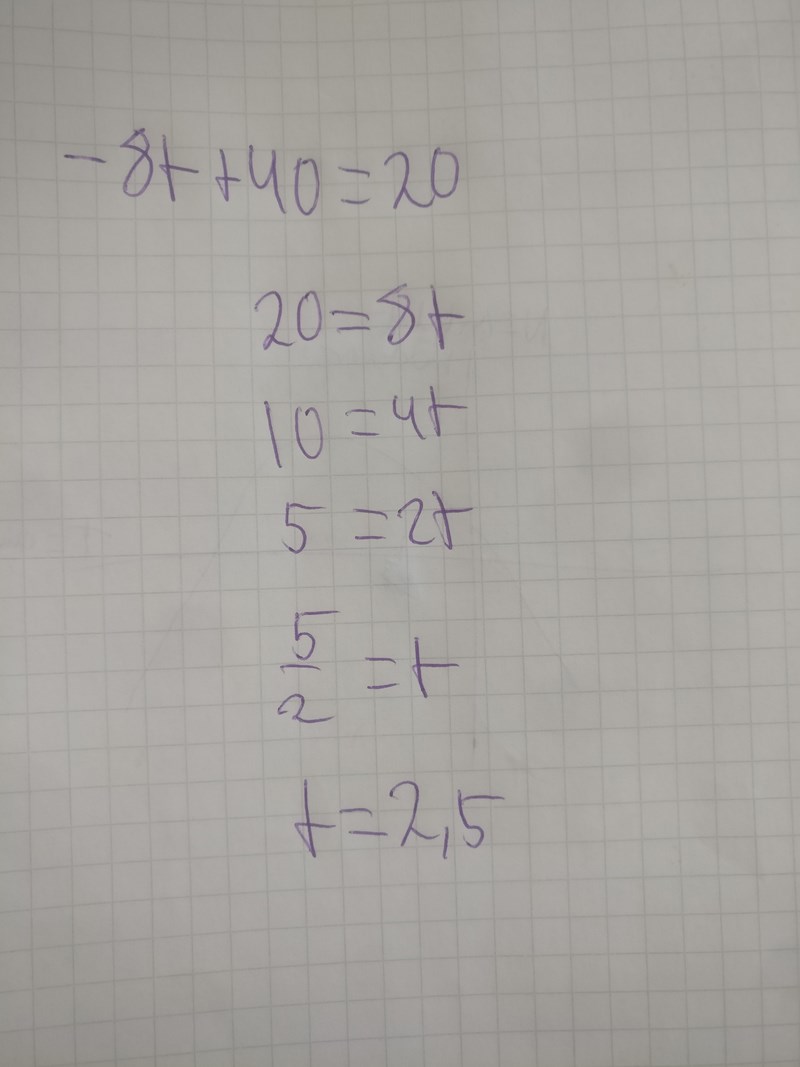 -8t+40=20
20=8t
10=4t
5=2t
5/2=t
t=2,5